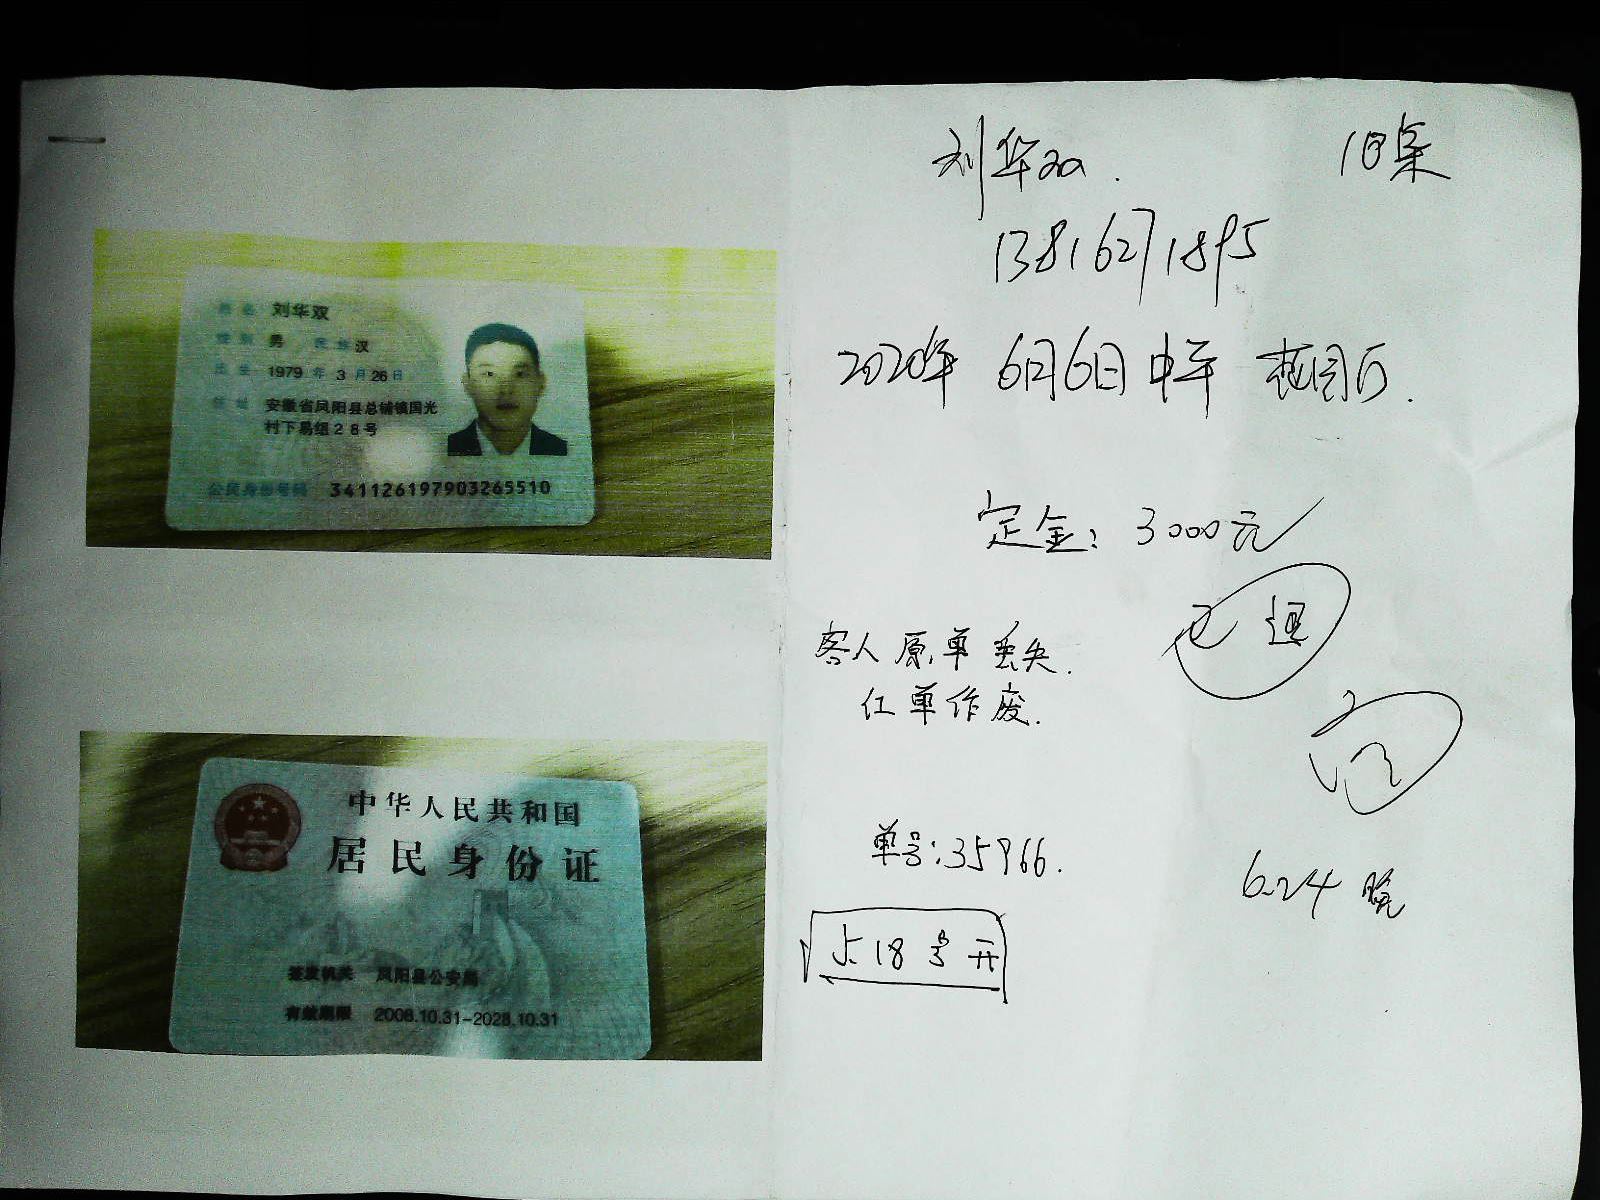 姓名 刘华双
性别 男 民族 汉
出生 1979 年 3 月 26 日
住址 安徽省凤阳县总铺镇国光
村下易组28号
公民身份号码 341126197903265510
中华人民共和国
居民身份证
签发机关 凤阳县公安局
有效期限 2008.10.31-2028.10.31
刘华双.
18桌
13816271895
2020年 6月6日 中午
定金: 3000元
已退
客人原单丢失.
红单作废.
单号:35966.
6.24 晚
5.18号开